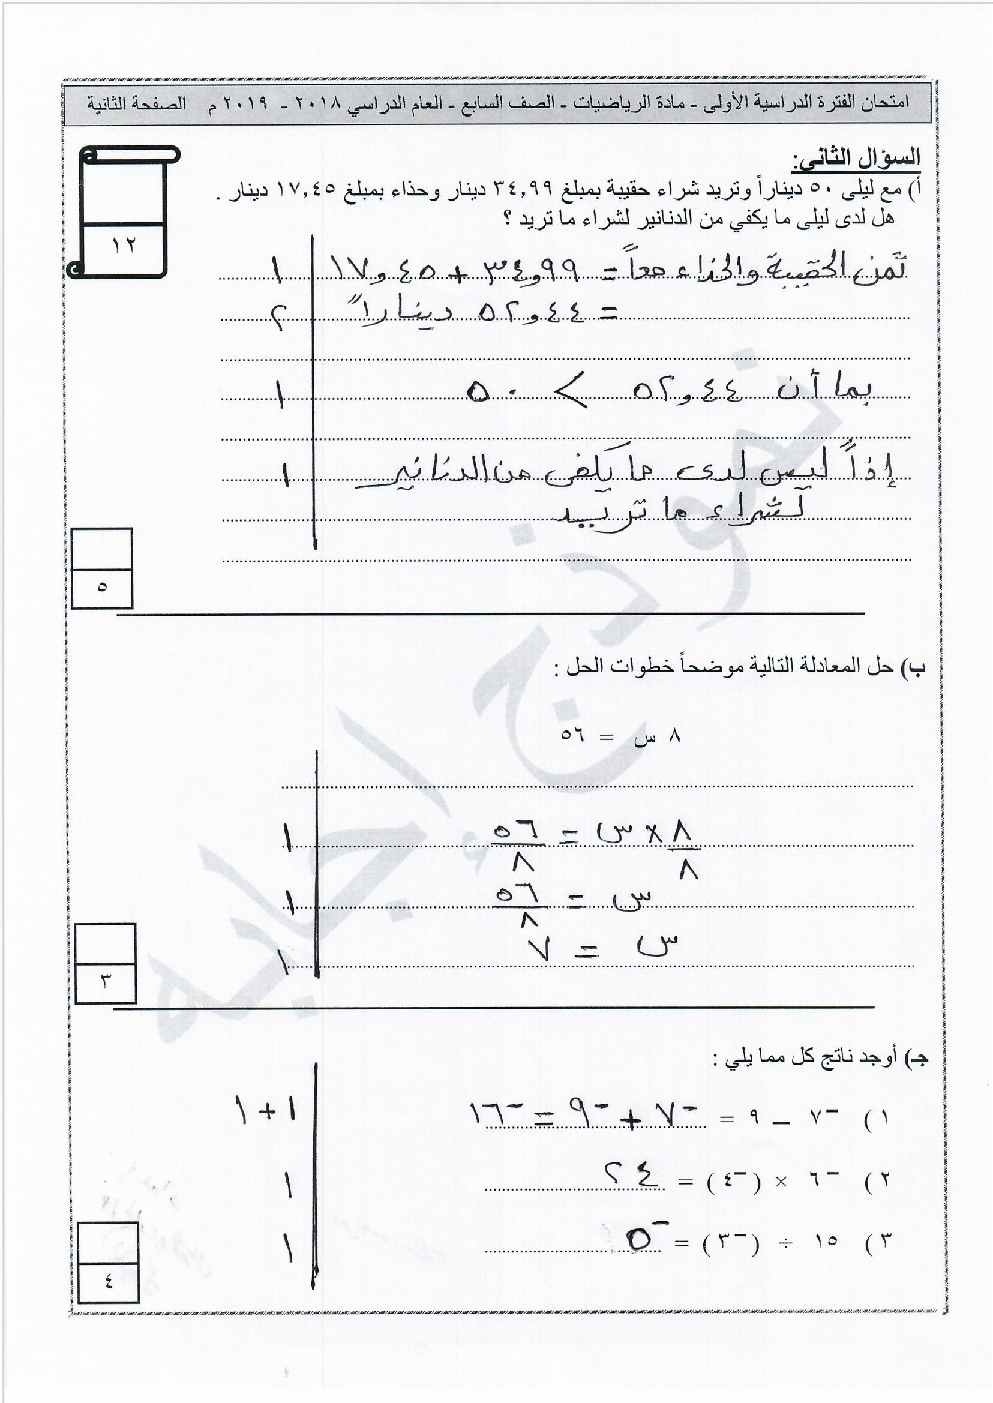 امتحان الفترة الدراسية الأولى - مادة الرياضيات - الصف السابع - العام الدراسي ٢٠١٨ - ٢٠١٩ م الصفحة الثانية
السؤال الثاني:
١٢
أ) مع ليلى ٥٠ ديناراً وتريد شراء حقيبة بمبلغ ٣٤,٩٩ دينار وحذاء بمبلغ ١٧,٤٥ دينار .
هل لدى ليلى ما يكفي من الدنانير لشراء ما تريد ؟
ثمن الحقيبة والحذاء معاً = ٣٤,٩٩ + ١٧,٤٥ ١
= ٥٢,٤٤ ديناراً ٢
بما أن ٥٢,٤٤ > ٥٠ ١
إذاً ليس لدى ما يكفى من الدنانير ١
لشراء ما تريد
٥
ب) حل المعادلة التالية موضحاً خطوات الحل :
٨ س = ٥٦
٨/٨ × س = ٥٦/٨ ١
س = ٥٦/٨ ١
س = ٧ ١
٣
جـ) أوجد ناتج كل مما يلي :
١) ⁻٧ – ٩ = ⁻٧ + ⁻٩ = ⁻١٦ ١ + ١
٢) ⁻٦ × (⁻٤) = ٢٤ ١
٣) ١٥ ÷ (⁻٣) = ⁻٥ ١
٤
نموذج إجابه